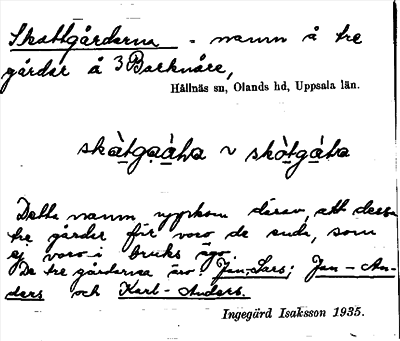 Skattgårdarna - namn å tre
gårdar å 3 Barknåre,
Hållnäs sn, Olands hd, Uppsala län.
skàtgaàɳa ~ skòtgàɳa
Detta namn uppkom därav, att dessa
tre gårdar för voro de enda, som
ej voro i bruks ägo.
De tre gårdarna äro: Jan-Lars; Jan-An-
ders och Karl-Anders.
Ingegärd Isaksson 1935.